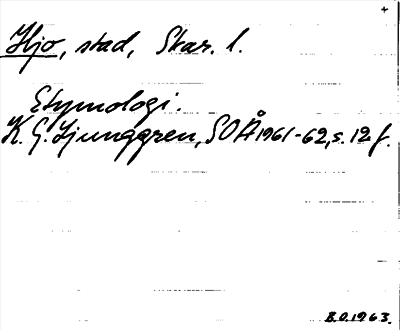 +
Hjo, stad, Skar. l.
Etymologi.
K. G. Ljunggren, SOÅ 1961-62, s. 12 f.
B.O. 1963.